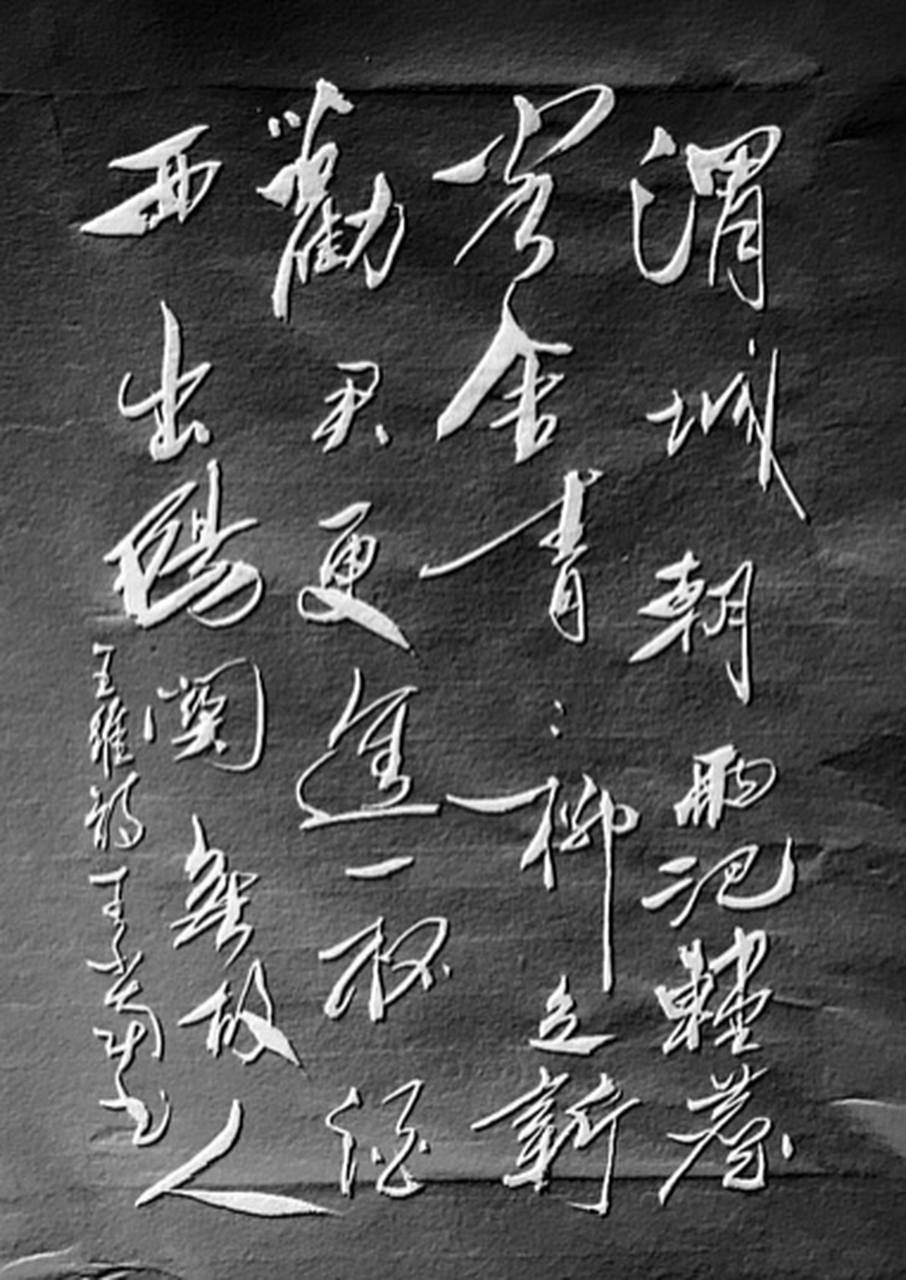 渭城朝雨浥輕塵
客舍青々柳色新
勸君更進一杯酒
西出陽關無故人
王維詩